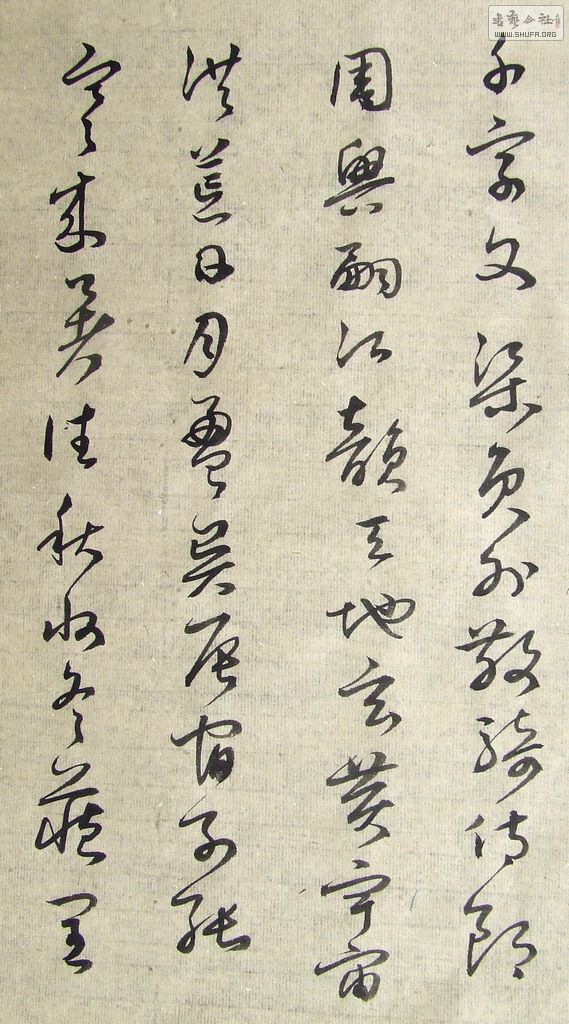 千字文梁員外散騎侍郎
周興嗣次韻天地玄黃宇宙
洪荒日月盈昃辰宿列張
寒來暑往秋收冬藏閏
書藝公社
WWW.SHUFA.ORG